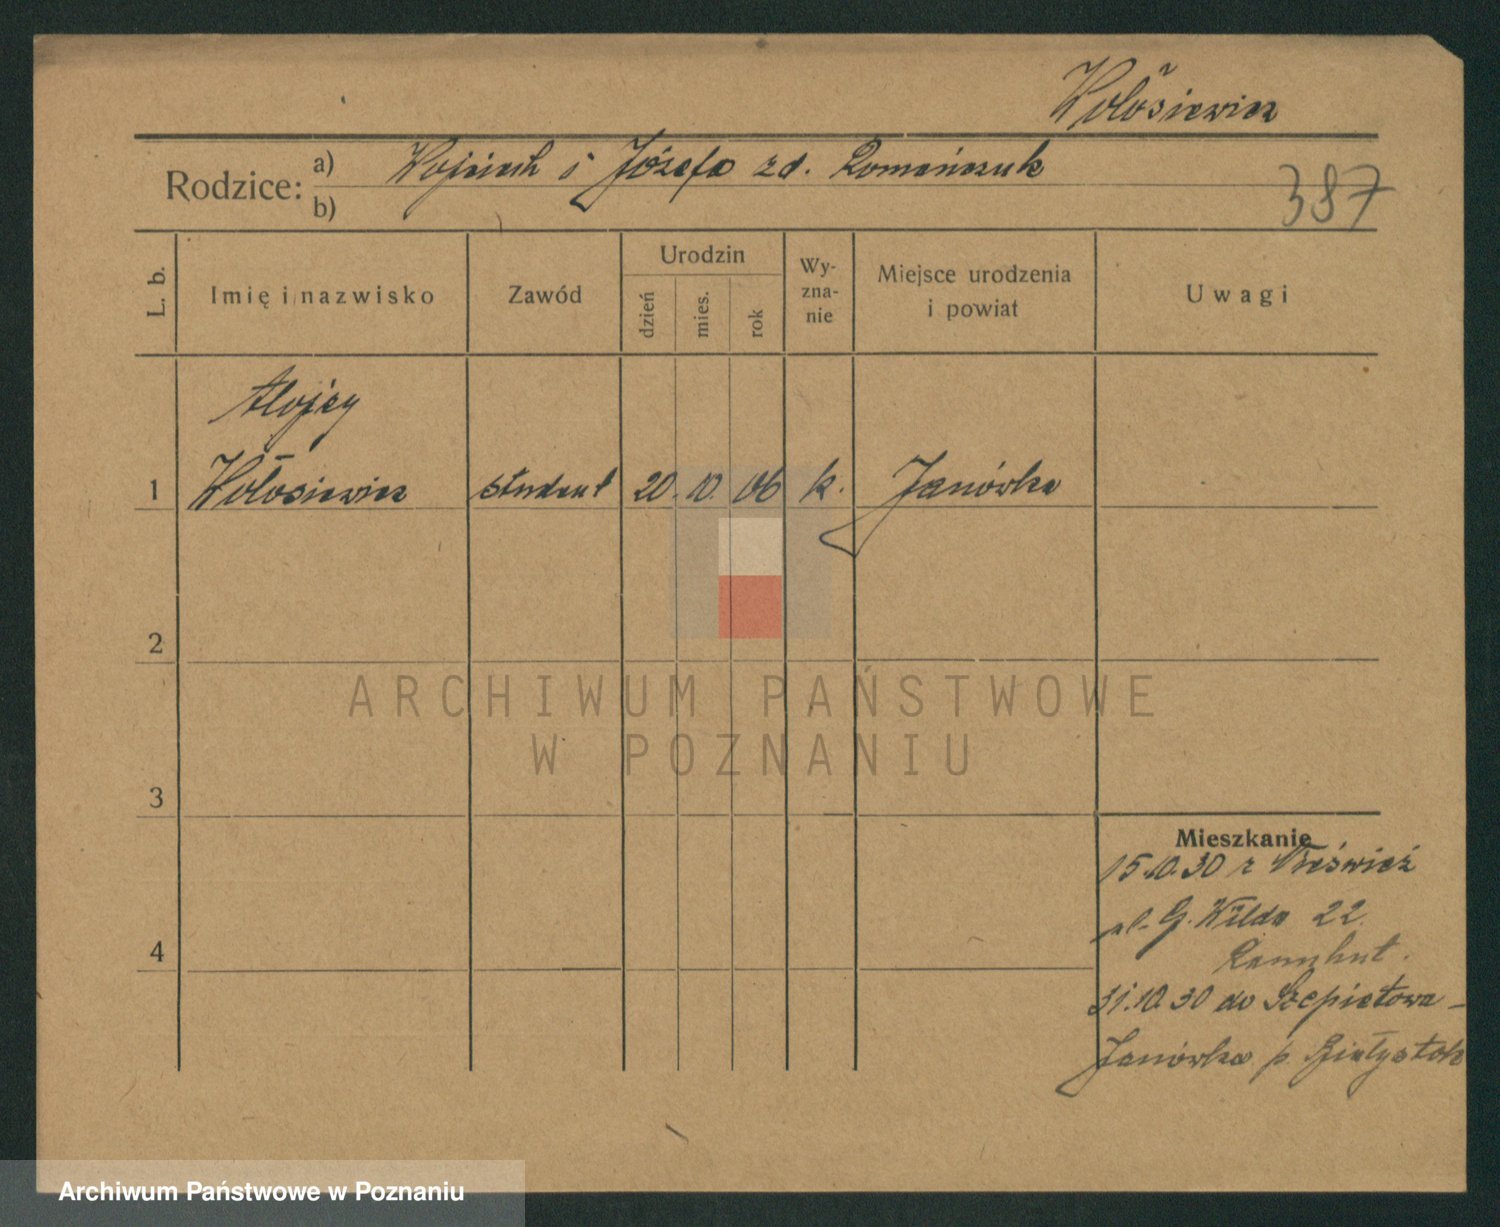 Wołosiewicz
Rodzice: a) Wojciech i Józefa zd. Romańczuk
b)
387
L. b.
Imię i nazwisko
Zawód
Urodzin
dzień
mies.
rok
Wy-
zna-
nie
Miejsce urodzenia
i powiat
Uwagi
Alojzy
1 Wołosiewicz student 20. 10. 06 k. Janówka
2
ARCHIWUM PAŃSTWOWE
W POZNANIU
3
Mieszkanie
15.10.30 z Nieśwież
ul. G. Wilda 22.
4
31.10.30 do Szepietowa -
Janówka p. Białystok
Archiwum Państwowe w Poznaniu